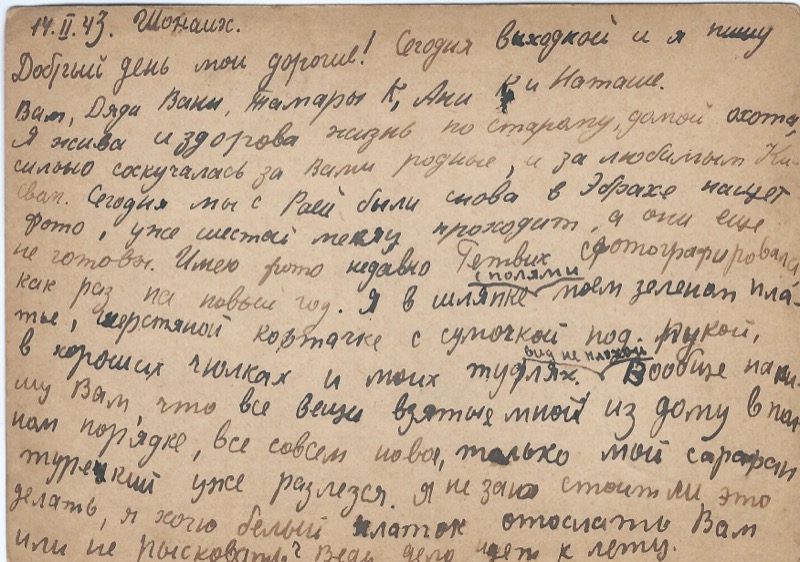 14.II.43. Шонаих.
Добрый день мои дорогие! Сегодня выходной и я пишу
Вам, Дяди Вани, Тамары К, Ани К и Наташе.
Я жива и здорова жизнь по старому, домой охота,
сильно соскучалась за Вами родные, и за любимым Ки-
евом. Сегодня мы с Раей были снова в Эбрахе насчет
фото, уже шестой месяц проходит, а они еще
не готовы. Имею фото недавно сфотографировалась
как раз на новый год. Я в шляпке с полями моем зеленом пла-
тье, шерстяной кофтачке с сумочкой под. рукой,
в хороших чюлках и моих туфлях. вид не плохой Вообще пи-
шу Вам, что все вещи взятые мной из дому в пол-
ном порядке, все совсем новое, только мой сарафан
турецкий уже разлезся. Я не заю стоит ли это
делать, я хочю белый платок отослать Вам
или не рысковать? Ведь дело идет к лету.